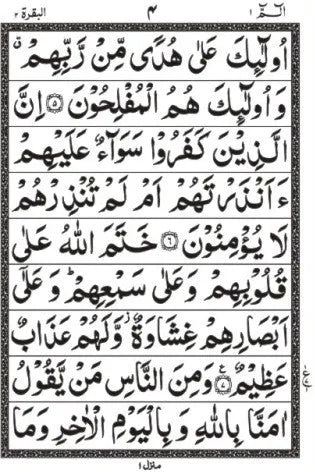 الٓمّٓ ١ ۴ البقرة ٢
اُولٰٓئِكَ عَلٰى هُدًى مِّنْ رَّبِّهِمْ ۗ
وَ اُولٰٓئِكَ هُمُ الْمُفْلِحُوْنَ ۝۵ اِنَّ
الَّذِيْنَ كَفَرُوْا سَوَآءٌ عَلَيْهِمْ
ءَاَنْذَرْتَهُمْ اَمْ لَمْ تُنْذِرْهُمْ
لَا يُؤْمِنُوْنَ ۝۶ خَتَمَ اللّٰهُ عَلٰى
قُلُوْبِهِمْ وَ عَلٰى سَمْعِهِمْ ؕ وَ عَلٰٓى
اَبْصَارِهِمْ غِشَاوَةٌ ؗ وَّلَهُمْ عَذَابٌ
عَظِيْمٌ وَمِنَ النَّاسِ مَنْ يَّقُوْلُ
اٰمَنَّا بِاللّٰهِ وَ بِالْيَوْمِ الْاٰخِرِ وَمَا
منزل ١